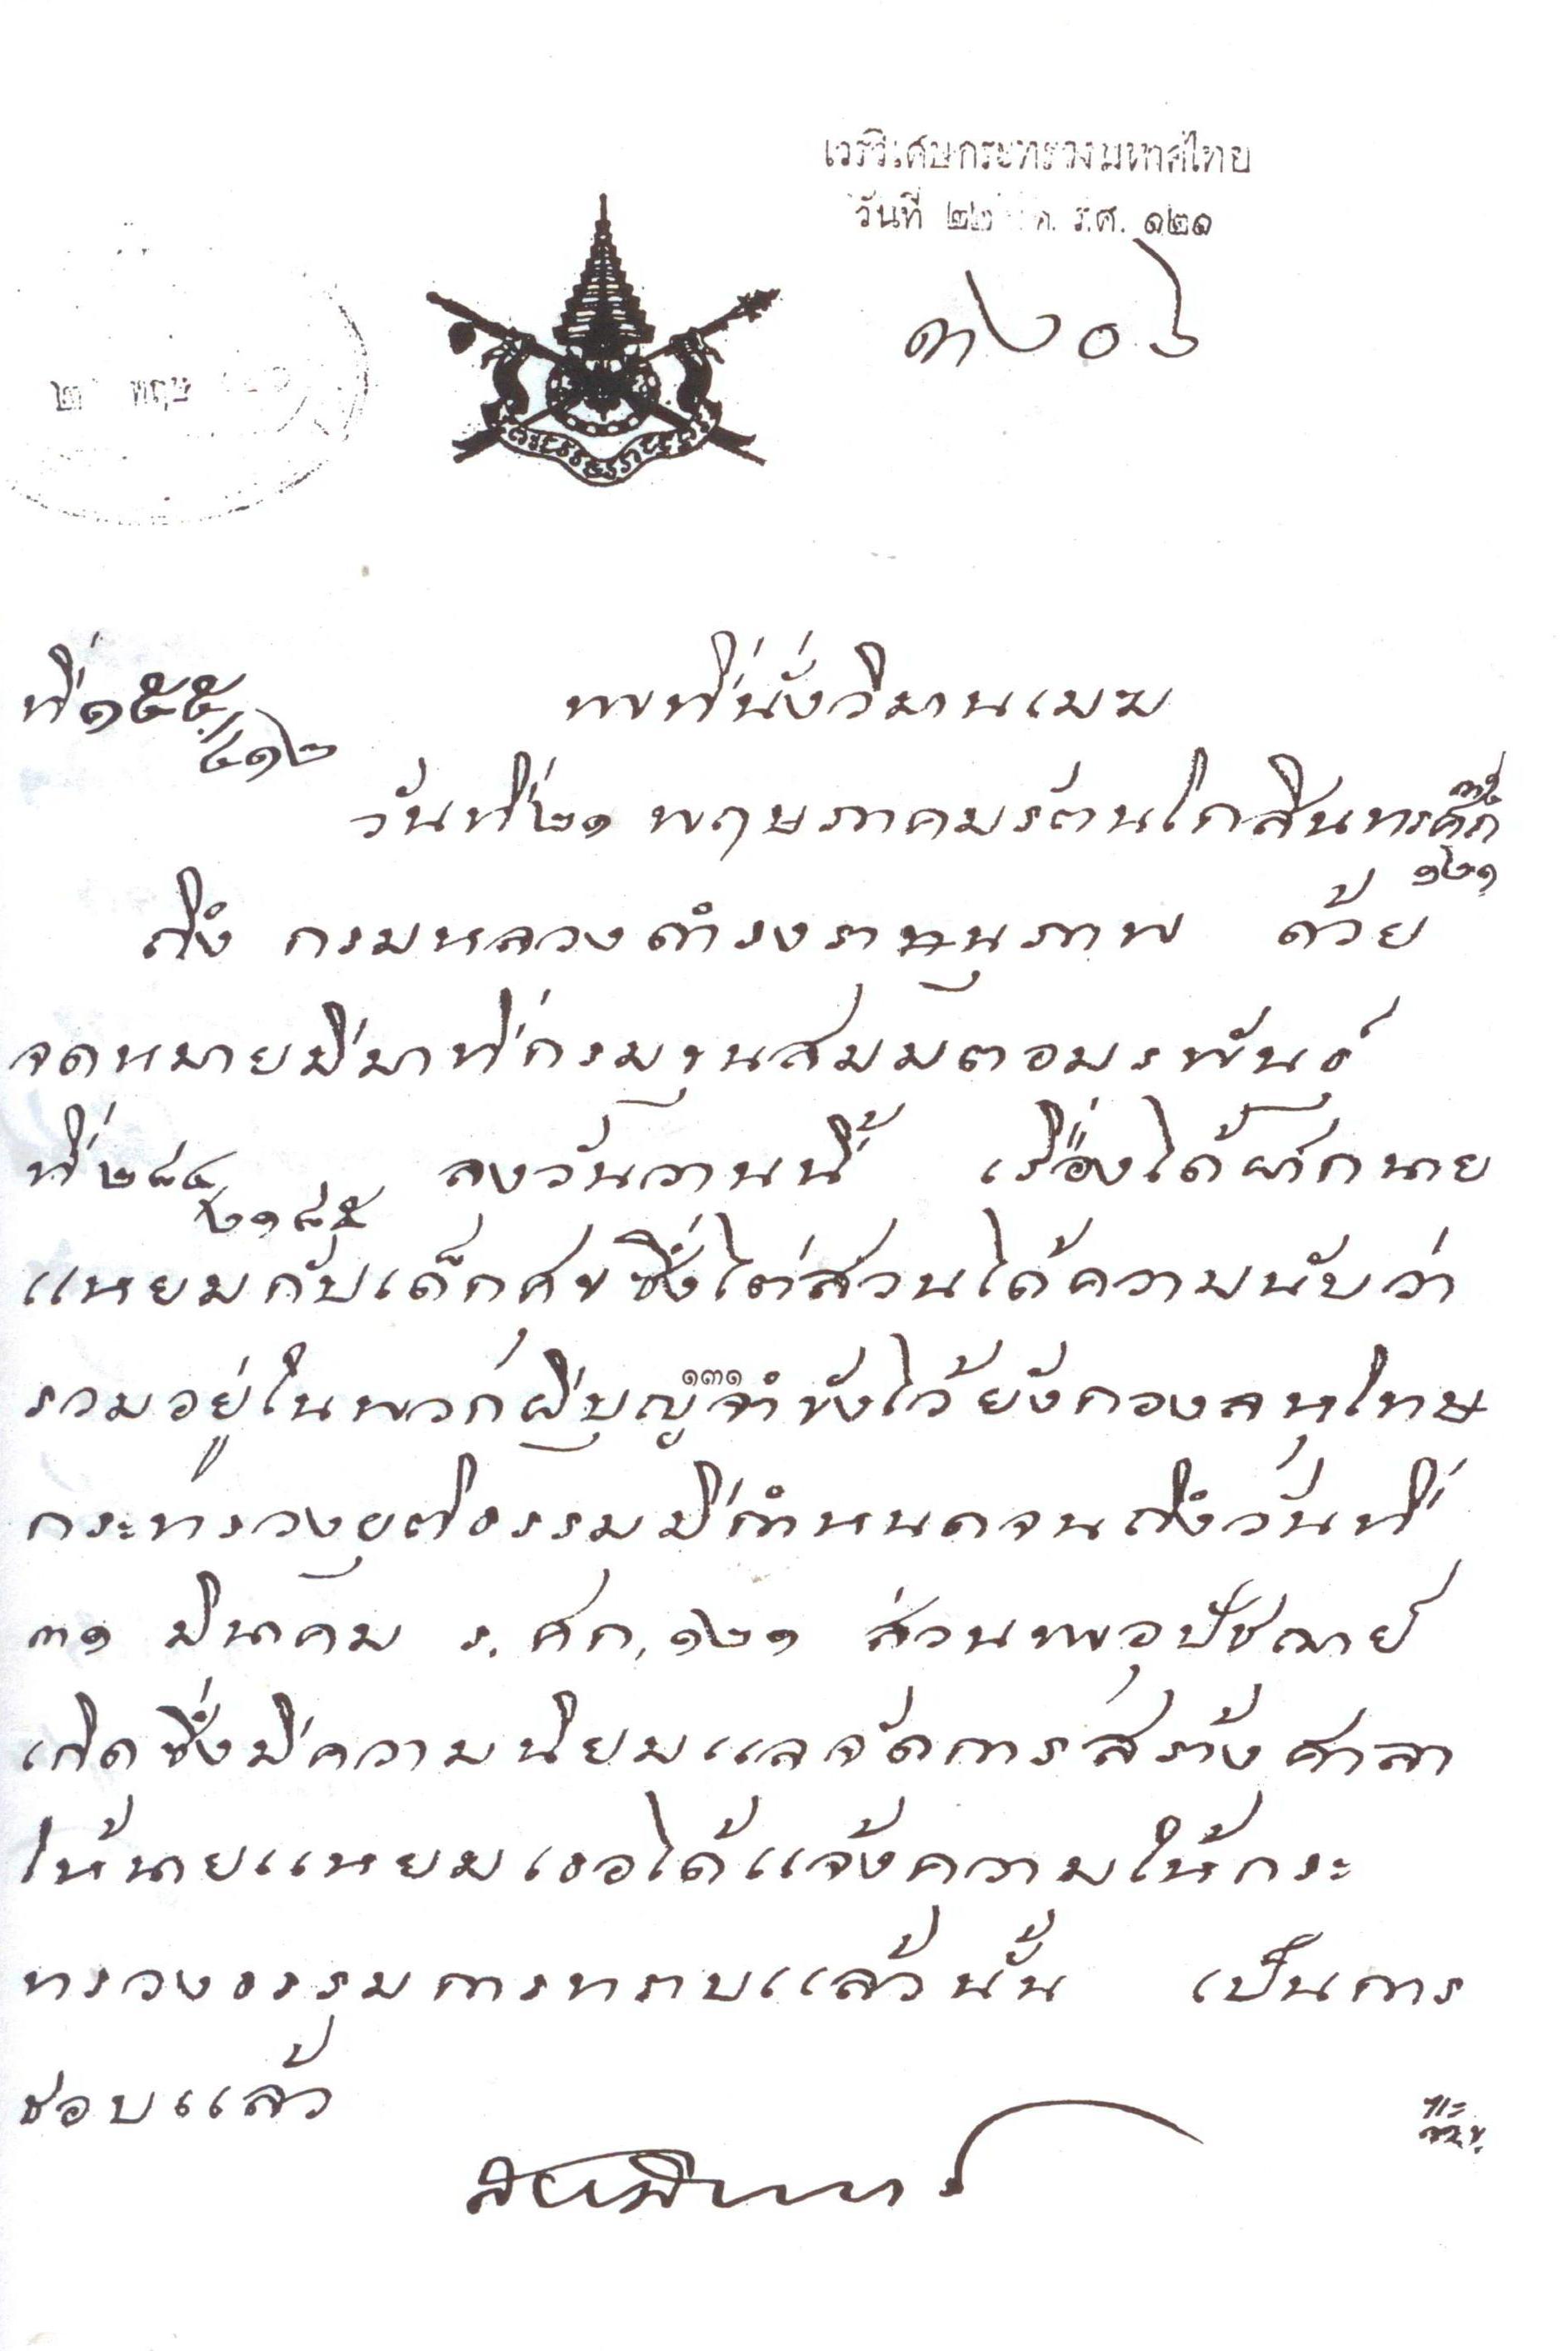 เวรวิเศษกระทรวงมหาดไทย
วันที่ ๒๒ ค. ร.ศ. ๑๒๑
๓๒๐๖
๒ พฤษ
ที่ ๑๕๕/๔๑๒
พที่นั่งวิมานเมฆ
วันที่ ๒๑ พฤษภาคม รัตนโกสินทรศก ๑๒๑
ถึง กรมหลวงดำรงราชานุภาพ ด้วย
จดหมายมีมาที่กรมขุนสมมตอมรพันธุ์
ที่ ๒๘๔/๒๑๘๕ ลงวันวานนี้ เรื่องได้ฝากนาย
แหยมกับเด็กศุขซึ่งไต่สวนได้ความนับว่า
รวมอยู่ในพวกผีบุญ ๑๓๑ จำขังไว้ยังกองลหุโทษ
กระทรวงยุติธรรมมีกำหนดจนถึงวันที่
๓๑ มินาคม ร.ศก, ๑๒๑ ส่วนพอุปัชฌาย์
เกิดซึ่งมีความนิยมแลจัดการสร้างศาลา
ให้นายแหยมเธอได้แจ้งความให้กระ
ทรวงธรรมการทราบแล้วนั้น เป็นการ
ชอบแล้ว